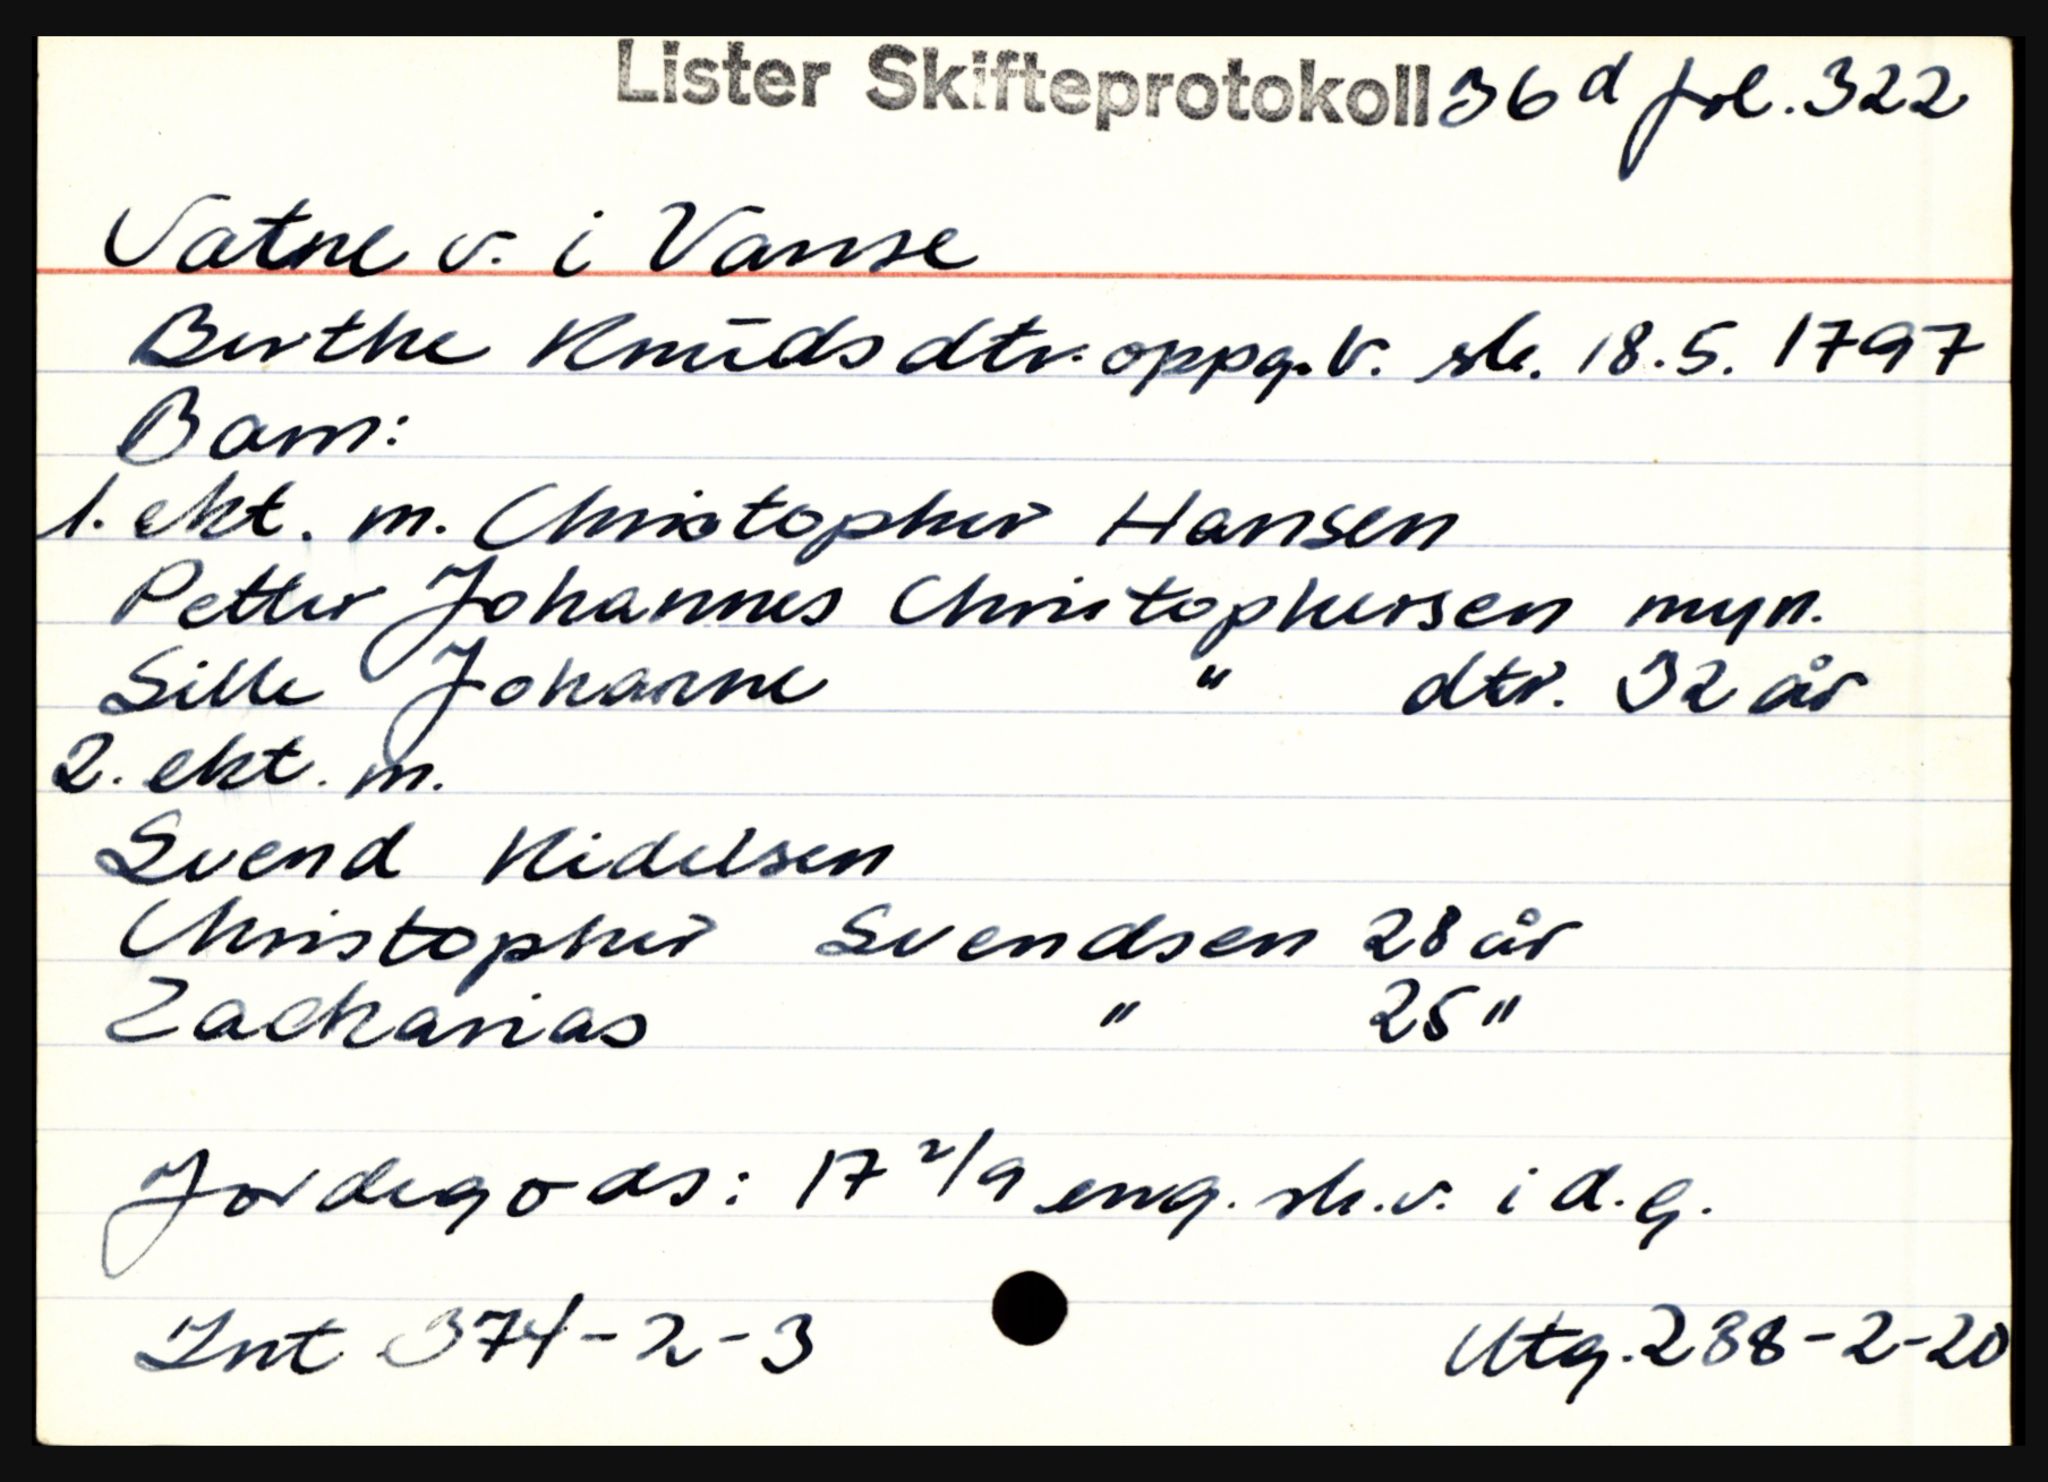 Lister Skifteprotokoll 36 d fol. 322
Vatne v. i Vanse
Berthe Knūdsdtr. oppg. V. sk. 18.5. 1797
Barn:
1. ekt. m. Christopher Hansen
Petter Johannes Christophersen myn.
Sille Johanne " dtr. 32 år
2. ekt. m.
Svend Kidelsen
Christopher Svendsen 28 år
Zacharias " 25 "
Jordegods: 17 2/9 eng. sk. v. i d. g.
Int 374-2-3 Utg. 288-2-20